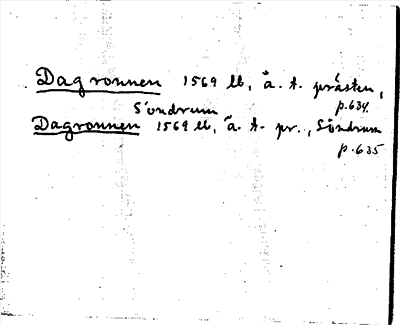 Dagronnen 1569 ll, å. t. prästen,
Söndrum p.634.
Dagronnen 1569 ll, å. t. pr., Söndrum
p.635